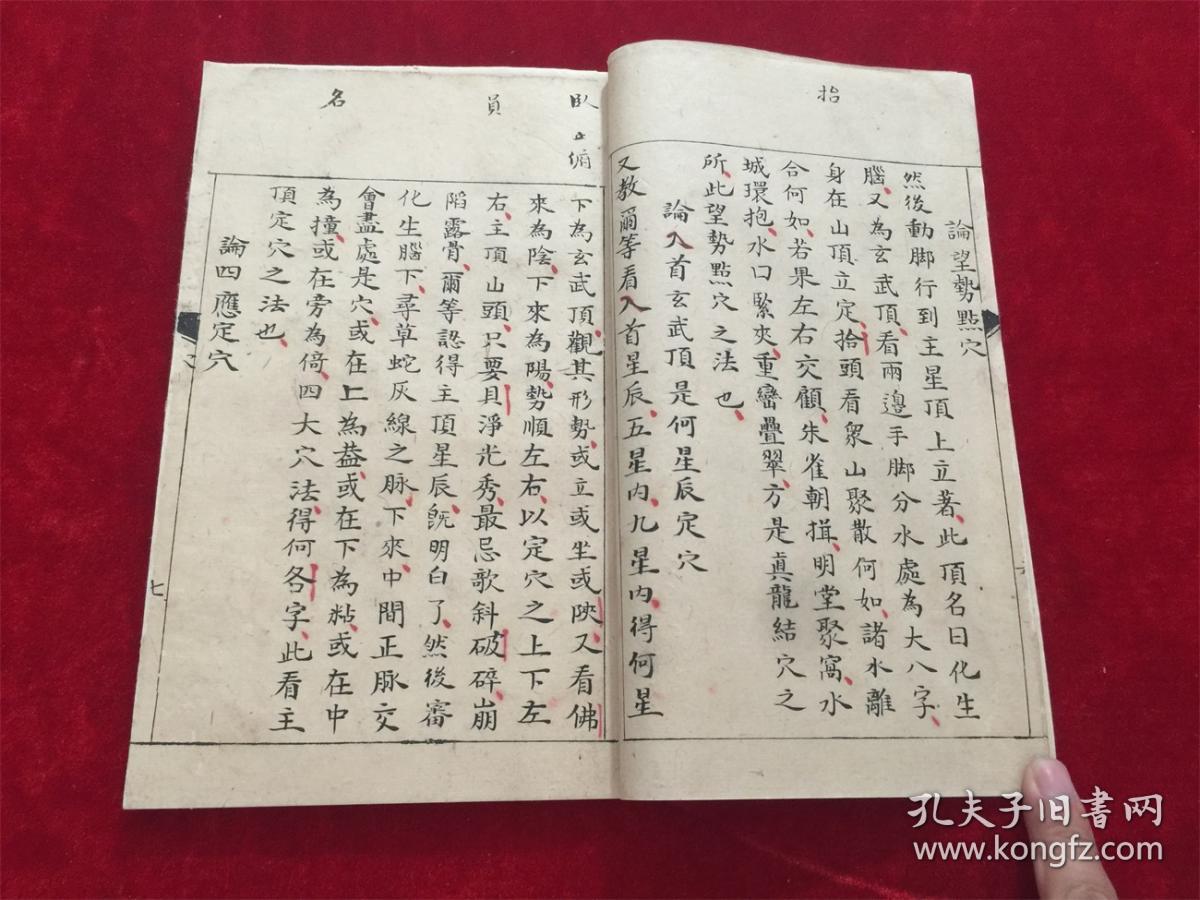 抬
論望勢點穴
然後動脚行到主星頂上立著、此頂名曰化生
腦、又為玄武頂、看兩邊手脚分水處為大八字、
身在山頂立定、拾頭看眾山聚散何如、諸水離
合何如、若果左右交顧、朱雀朝揖、明堂聚窩、水
城環抱、水口緊夾、重巒疊翠、方是真龍結穴之
所、此望勢點穴之法也、
論入首玄武頂是何星辰定穴
又教爾等看入首星辰、五星内、九星内、得何星
臥 止俯
員
名
下為玄武頂、觀其形勢、或立或坐或陜、又看佛
來為陰、下來為陽、勢順左右、以定穴之上下左
右、主頂山頭、只要具淨光秀、最忌歌斜破碎、崩
陷露骨、爾等認得主頂星辰、既明白了、然後審
化生腦下、尋草蛇灰線之脉、下來、中間正脉交
會盡處是穴、或在上為葢、或在下為粘、或在中
為撞、或在旁為倚、四大穴法、得何各字、此看主
頂定穴之法也、
論四應定穴
七
孔夫子旧书网
www.kongfz.com